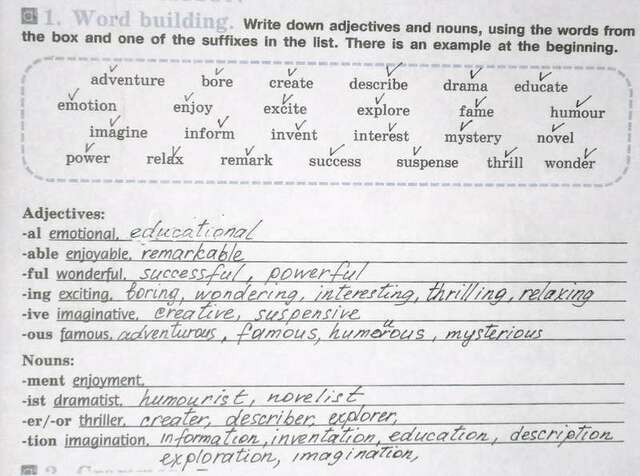 1. Word building. Write down adjectives and nouns, using the words from
the box and one of the suffixes in the list. There is an example at the beginning.
adventure bore create describe drama educate
emotion enjoy excite explore fame humour
imagine inform invent interest mystery novel
power relax remark success suspense thrill wonder
Adjectives:
-al emotional, educational
-able enjoyable, remarkable
-ful wonderful, successful, powerful
-ing exciting, boring, wondering, interesting, thrilling, relaxing
-ive imaginative, creative, suspensive
-ous famous, adventurous, famous, humoruous, mysterious
Nouns:
-ment enjoyment,
-ist dramatist, humourist, novelist
-er/-or thriller, creater, describer, explorer,
-tion imagination, information, inventation, education, description
exploration, imagination,